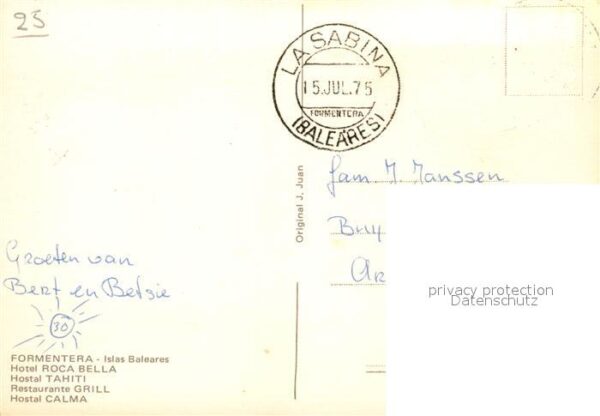 25
LA SABINA
15.JUL.75
FORMENTERA
(BALEARES)
Original J. Juan
Fam M. Janssen
Groeten van
Bert en Betsie
30
privacy protection
Datenschutz
FORMENTERA - Islas Baleares
Hotel ROCA BELLA
Hostal TAHITI
Restaurante GRILL
Hostal CALMA